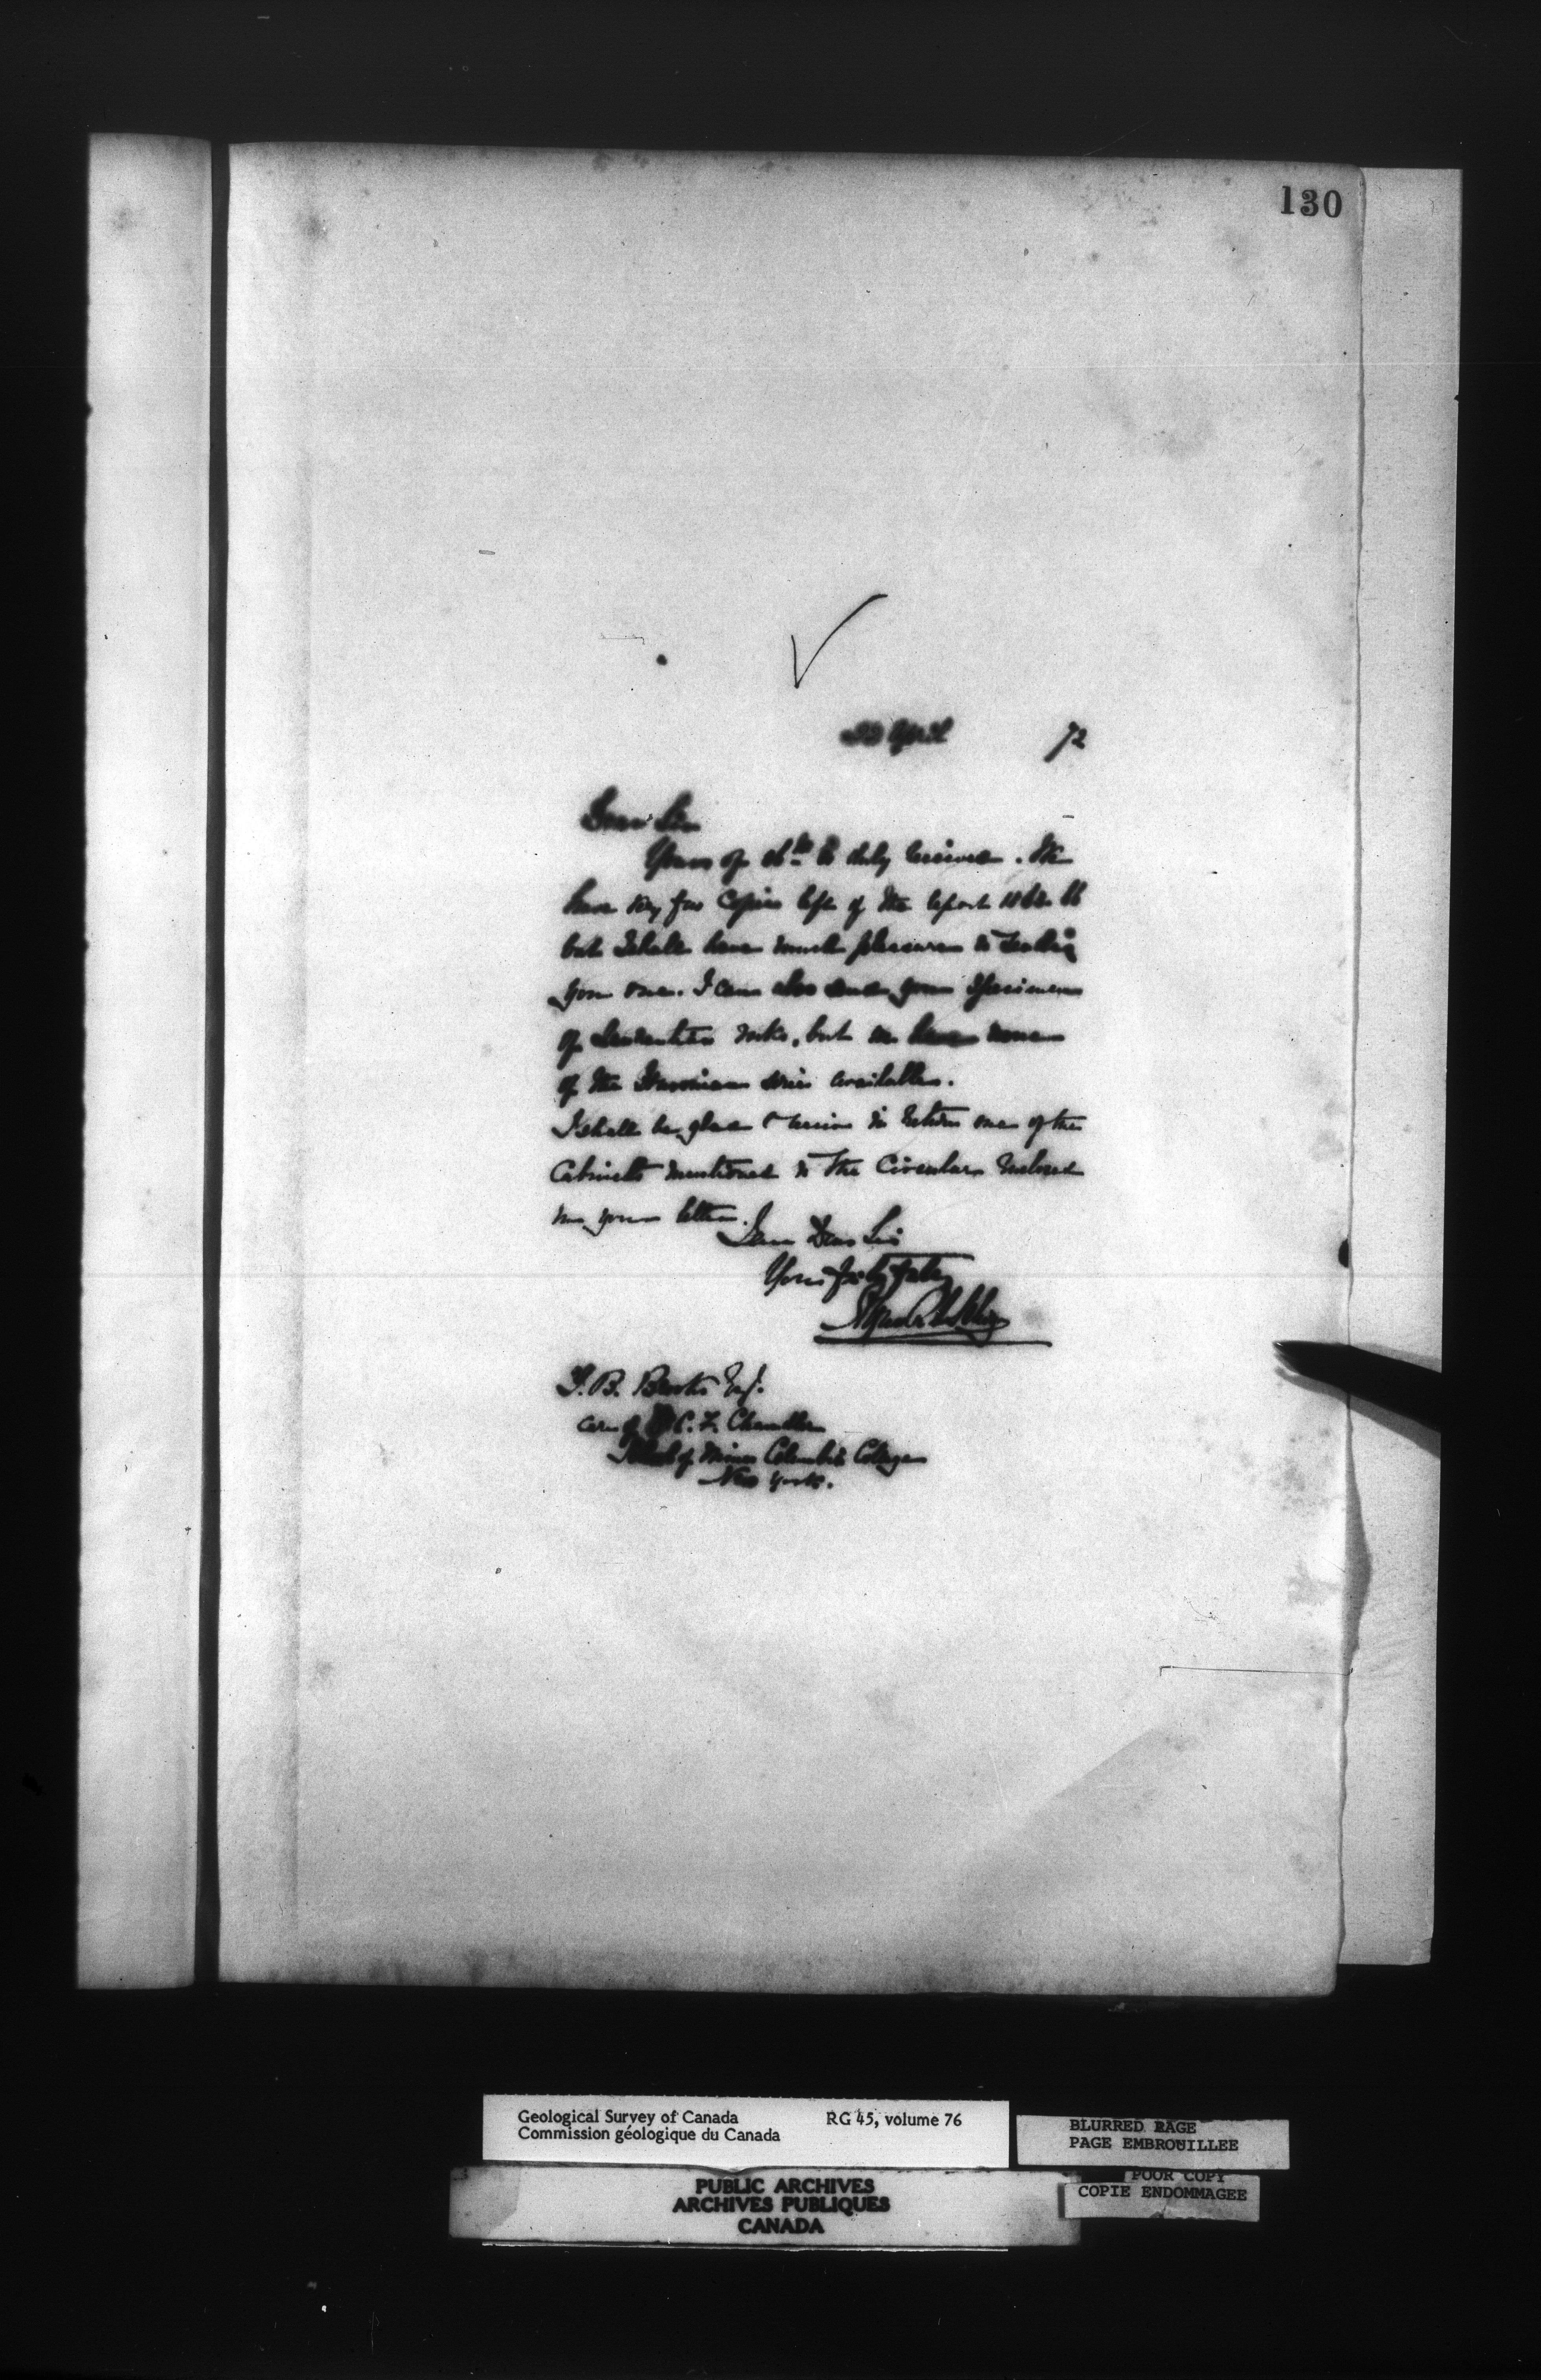 130
22 April 72
Dear Sir
Yours of 16th is duly received. We
have very few Copies left of the report 1866
but I shall have much pleasure in sending
you one. I can also send you specimens
of Laurentian rocks, but we have none
of the Huronian series available.
I shall be glad to receive in return one of the
Cabinets mentioned in the Circular enclosed
in your letter.
I am Dear Sir
Yours
T. B. Brooks Esq.
care of C. F. Chandler
School of Mines Columbia College
New York.
Geological Survey of Canada RG 45, volume 76
Commission géologique du Canada
BLURRED PAGE
PAGE EMBROUILLEE
POOR COPY
COPIE ENDOMMAGEE
PUBLIC ARCHIVES
ARCHIVES PUBLIQUES
CANADA